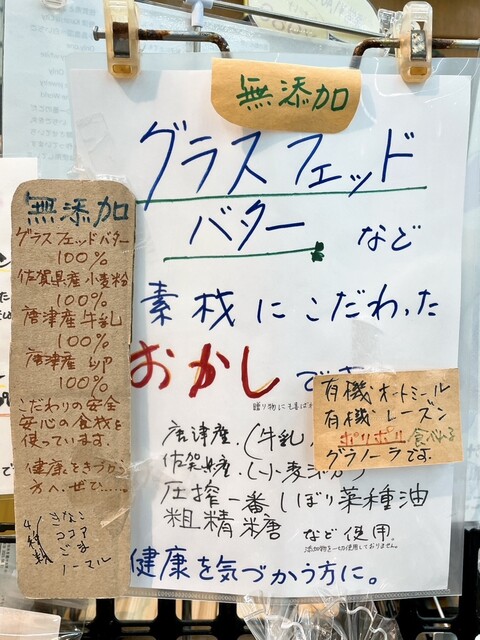 無添加
グラスフェッド
バター など
素材にこだわった
おかし
贈り物にも喜ば
唐津産.(牛乳
佐賀県産.(小麦
圧搾一番しぼり菜種油
粗精糖 など使用。
添加物を一切使用しておりません。
健康を気づかう方に。
有機オートミール
有機レーズン
ポリポリ食べれる
グラノーラです。
無添加
グラスフェッドバター
100%
佐賀県産小麦粉
100%
唐津産牛乳
100%
唐津産 卵
100%
こだわりの安全
安心の食材を
使っています。
健康をきづかう
方へ.ぜひ.....
きなこ
ココア
ごま
ノーマル